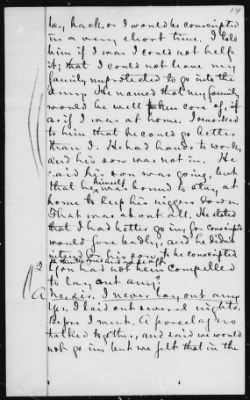 14
back or I would be conscripted
in a very short time. I told
him if I was I could not help
it; that I could not leave my
family unprotected to go into the
army. He named that my family
would be well taken care of, if
as if I was at home. I answered
to him that he could go better
than I. He had hands to work
and his son was not in. He
said his son was going, but
that he himself was bound to stay at
home to keep his niggers down.
That was about all. He stated
that I had better go in, for conscripts
would fare badly, and he didn't
conscripted
2 you had not been compelled
to lay out any?
A No sir. I never lay out any
yes. I laid out several nights.
Before I went. A parcel of us
talked together, and said we would
not go in, but we felt that in the